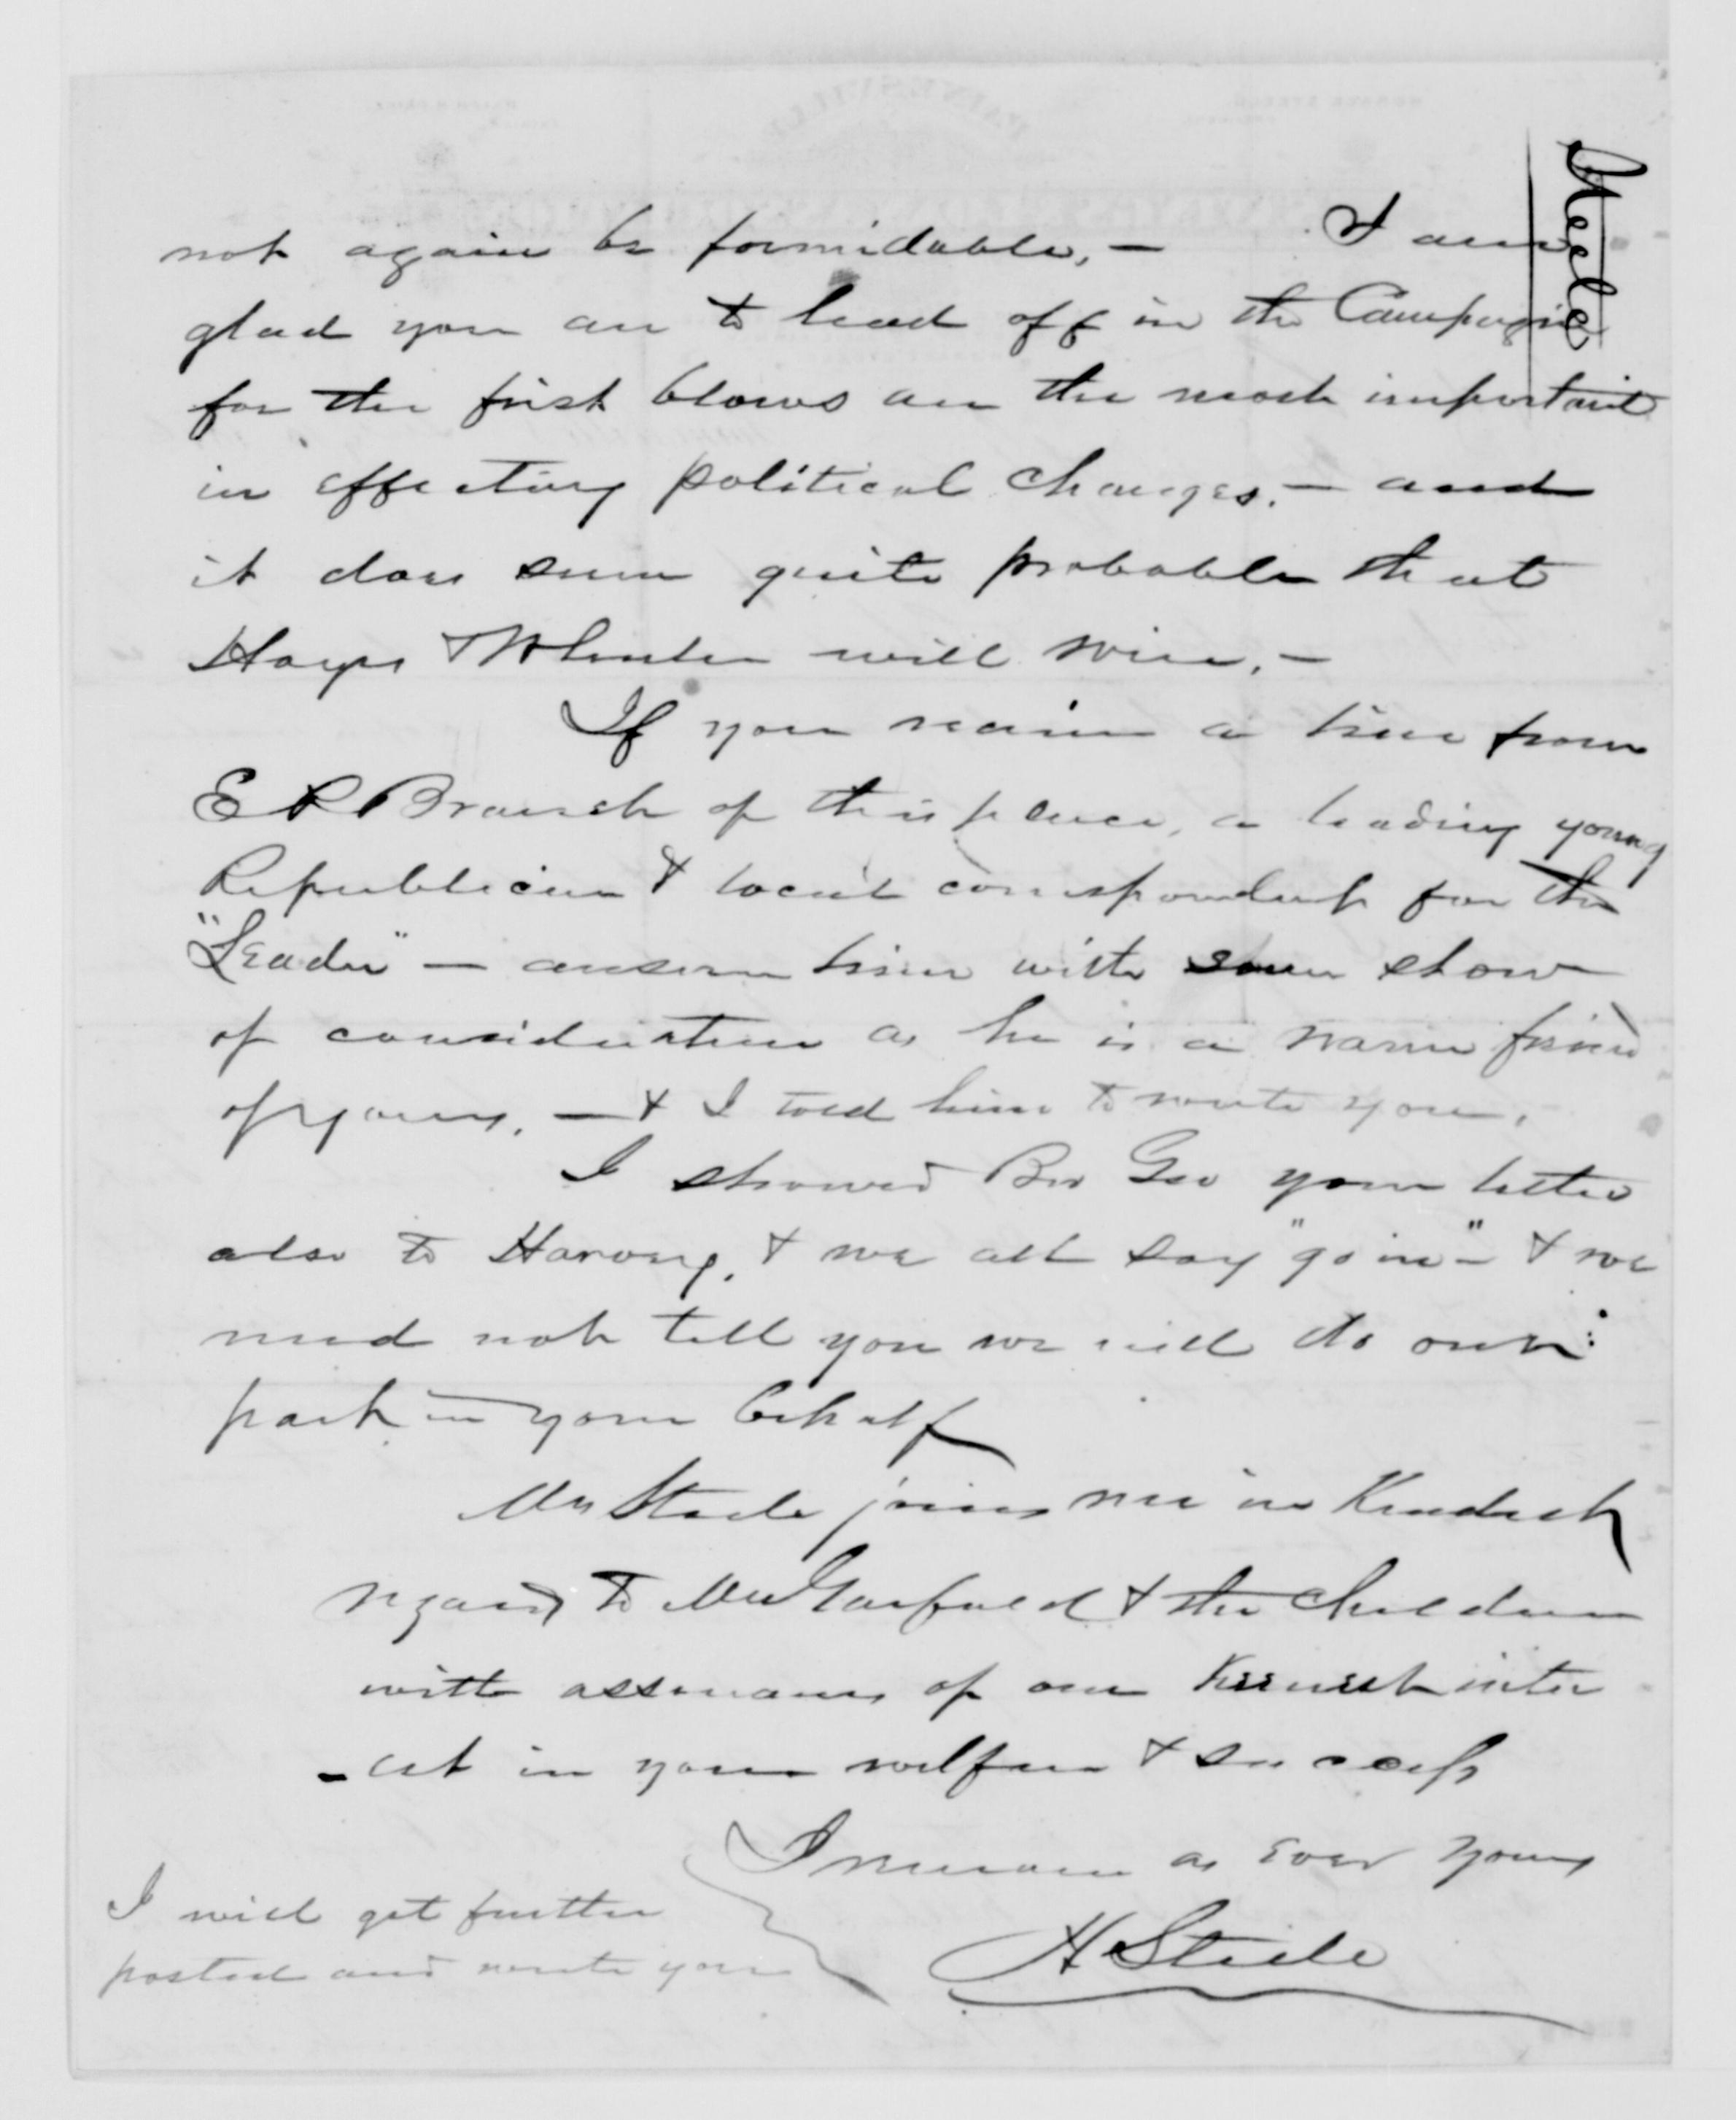 Steele
not again be formidable, — I am
glad you are to lead off in the Campaign
for the first blows are the most important
in effecting political changes. — and
it does seem quite probable that
Hayes & Wheeler will win. —
If you receive a line from
E R Branch of this place, a leading young
Republican & local correspondent for the
"Leader" — answer him with some show
of consideration as he is a warm friend
of yours. — & I told him to write you.
I showed Bro Geo your letter
also to Harvey, & we all say "go in" — & we
need not tell you we will do our
part in your behalf
Mrs Steele joins me in Kindest
regards to Mrs Garfield & the children
with assurances of our Kindest inter
-est in your welfare & success
I remain as ever yours
H Steele
I will get further
posted and write you